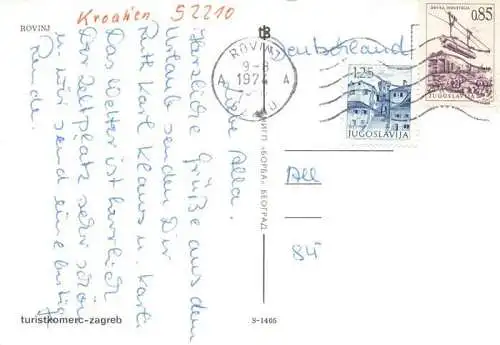 ROVINJ
Kroatien 52210
Liebe Ella!
Herzliche Grüße aus dem
Urlaub senden Dir
Ruth Karl Klaus u. Karli
Das Wetter ist herrlich
Der Zeltplatz sehr schön
u. wir sind eine lustige
Runde.
turistkomerc-zagreb
S-1405
БИГП «БОРБА» БЕОГРАД
ROVINJ
9-8
1974
A A
Deutschland
1.25
JUGOSLAVIJA
0.85
JUGOSLAVIJA
84